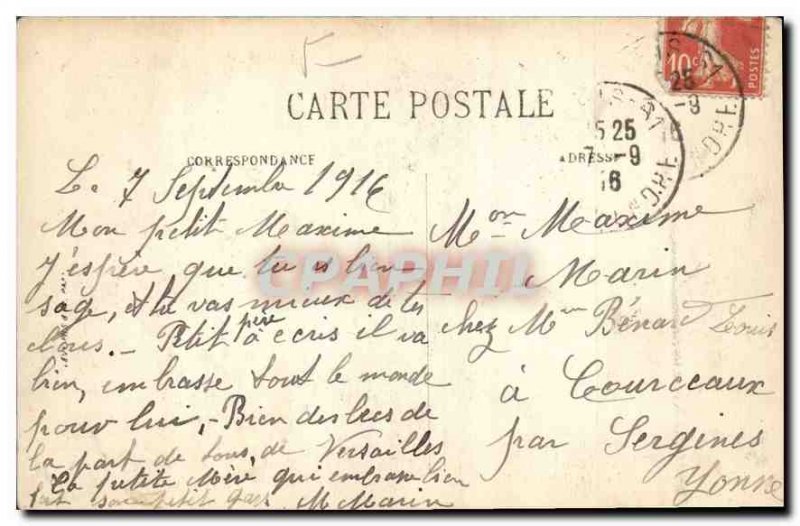 CARTE POSTALE
CORRESPONDANCE
ADRESSE
10c
POSTES
25
-9
25
7 -9
16
DRE
Le 7 Septembre 1916
Mon petit Maxime
J'espère que tu es bien
sage, et tu vas mieux de tes
clous. - Petit père à ecris il va
bien, embrasse tout le monde
pour lui, - Bien des de
la part de tous, de Versailles
La petite Mère qui embrasse bien
son petit gas
M Marin
Mon Maxime
Marin
chez Mme Bénard Louis
à Courceaux
par Sergines
Yonne
CPAPHIL